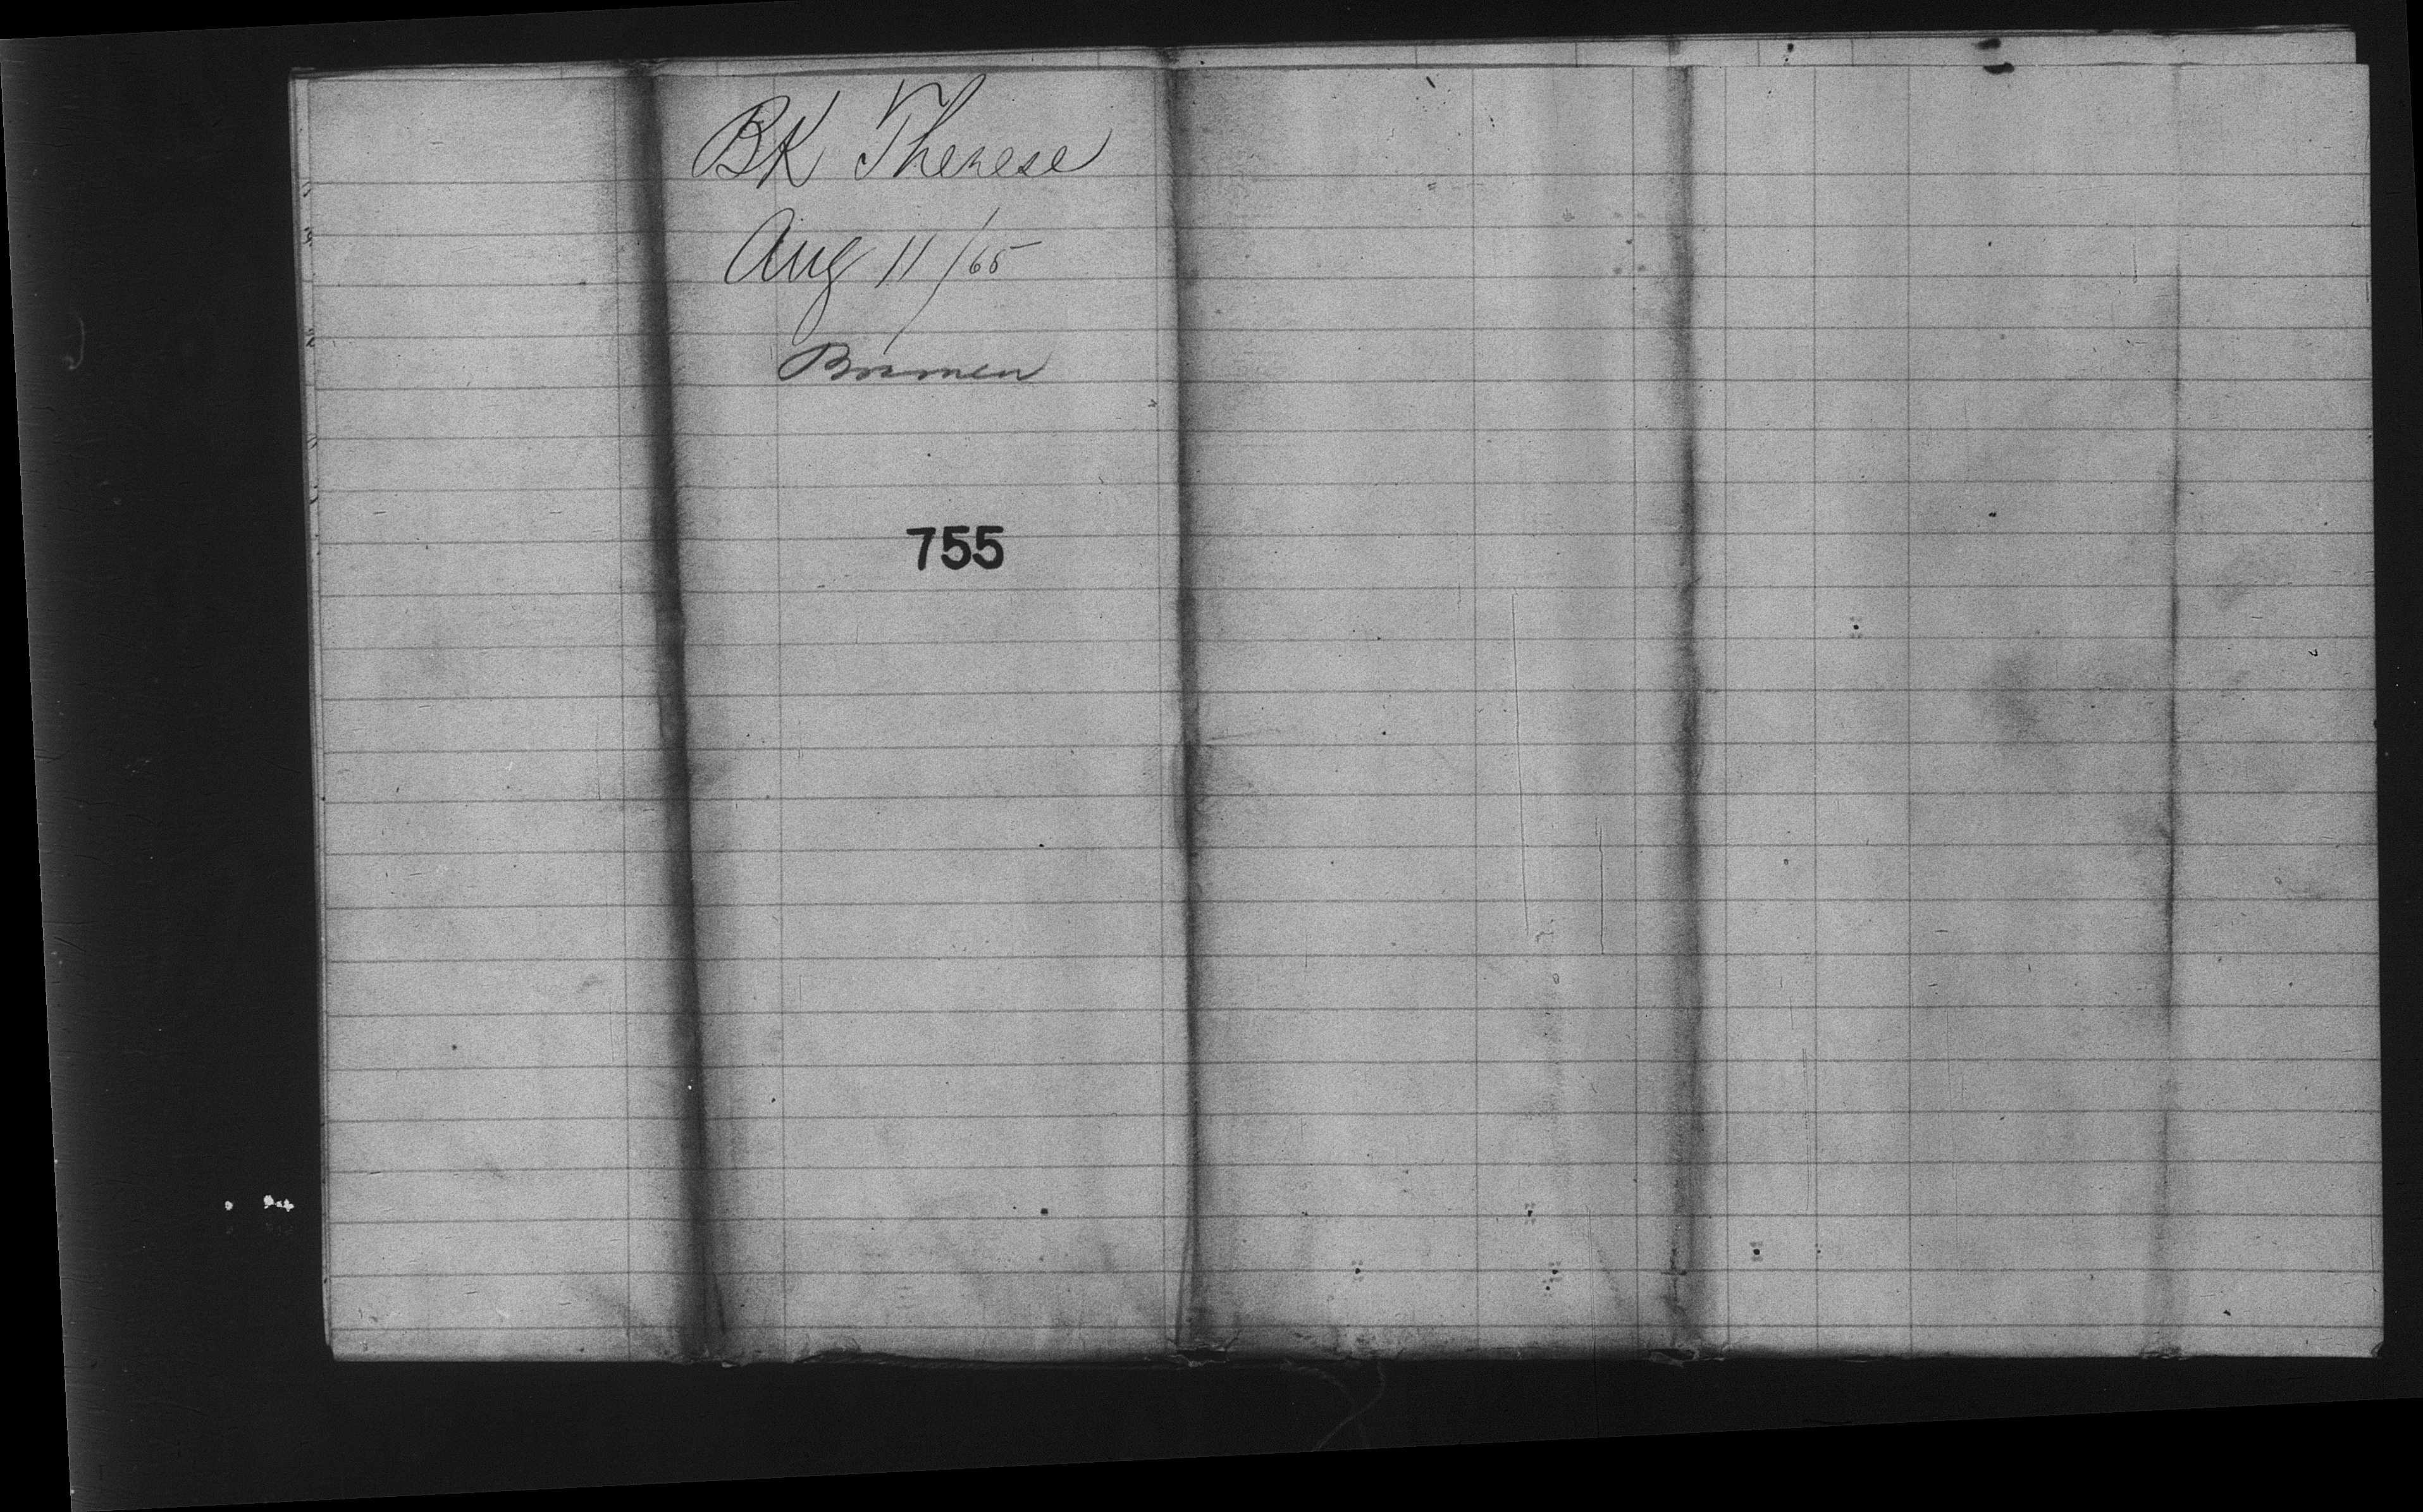 BK Therese
Aug 11/65
Bremen
755